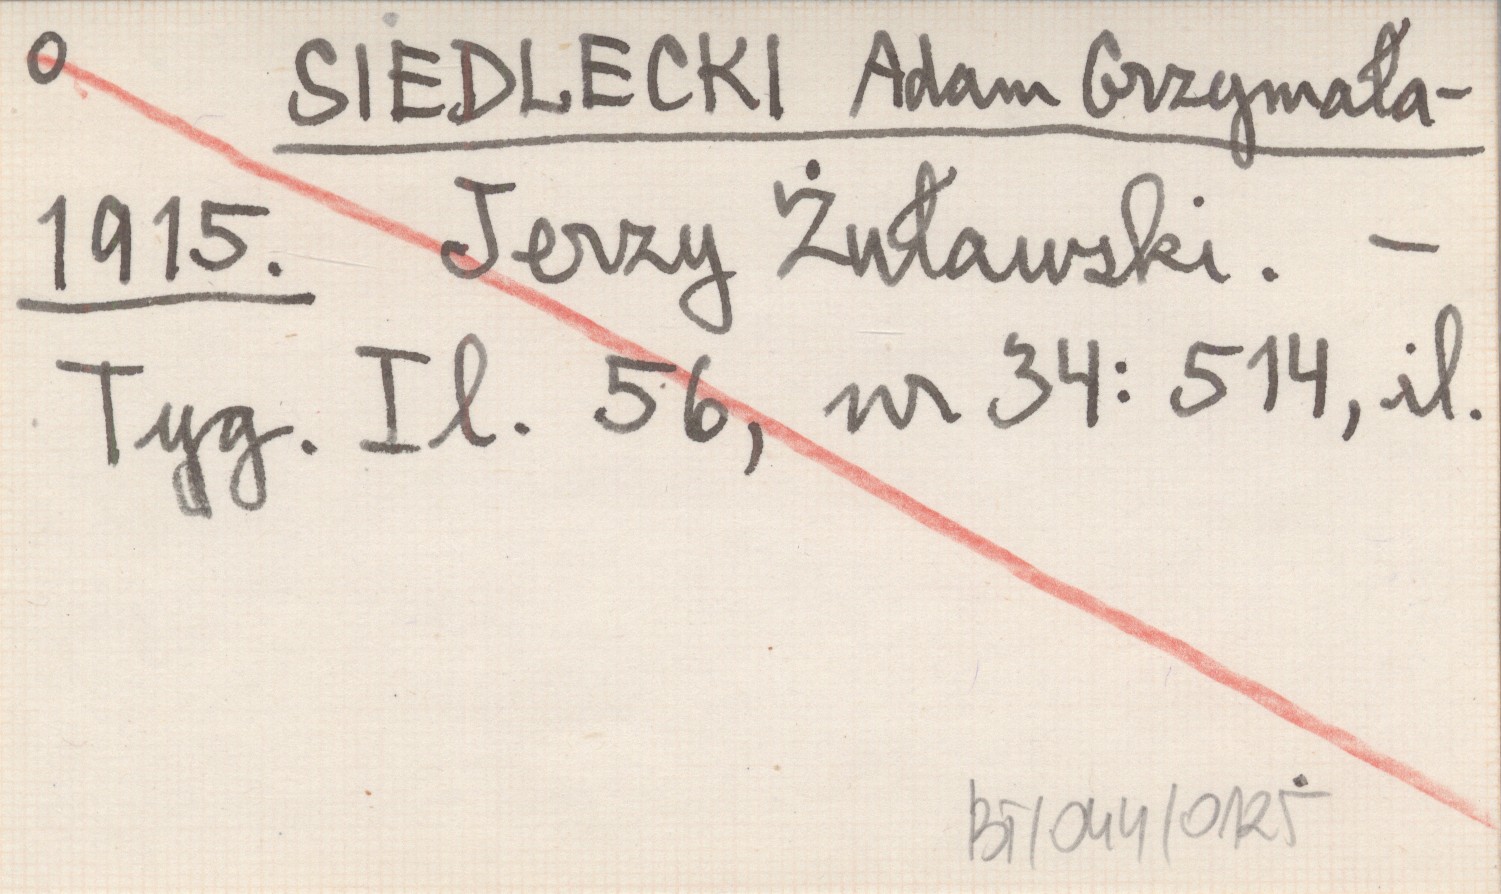 0 SIEDLECKI Adam Grzymała-
1915. Jerzy Żuławski. –
Tyg. Il. 56, nr 34: 514, il.
BT/044/0125